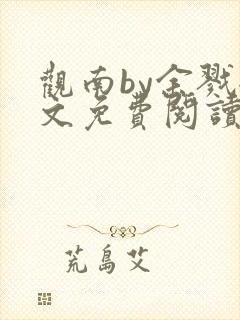 觀南by全戮
文免費閱讀
荒島艾